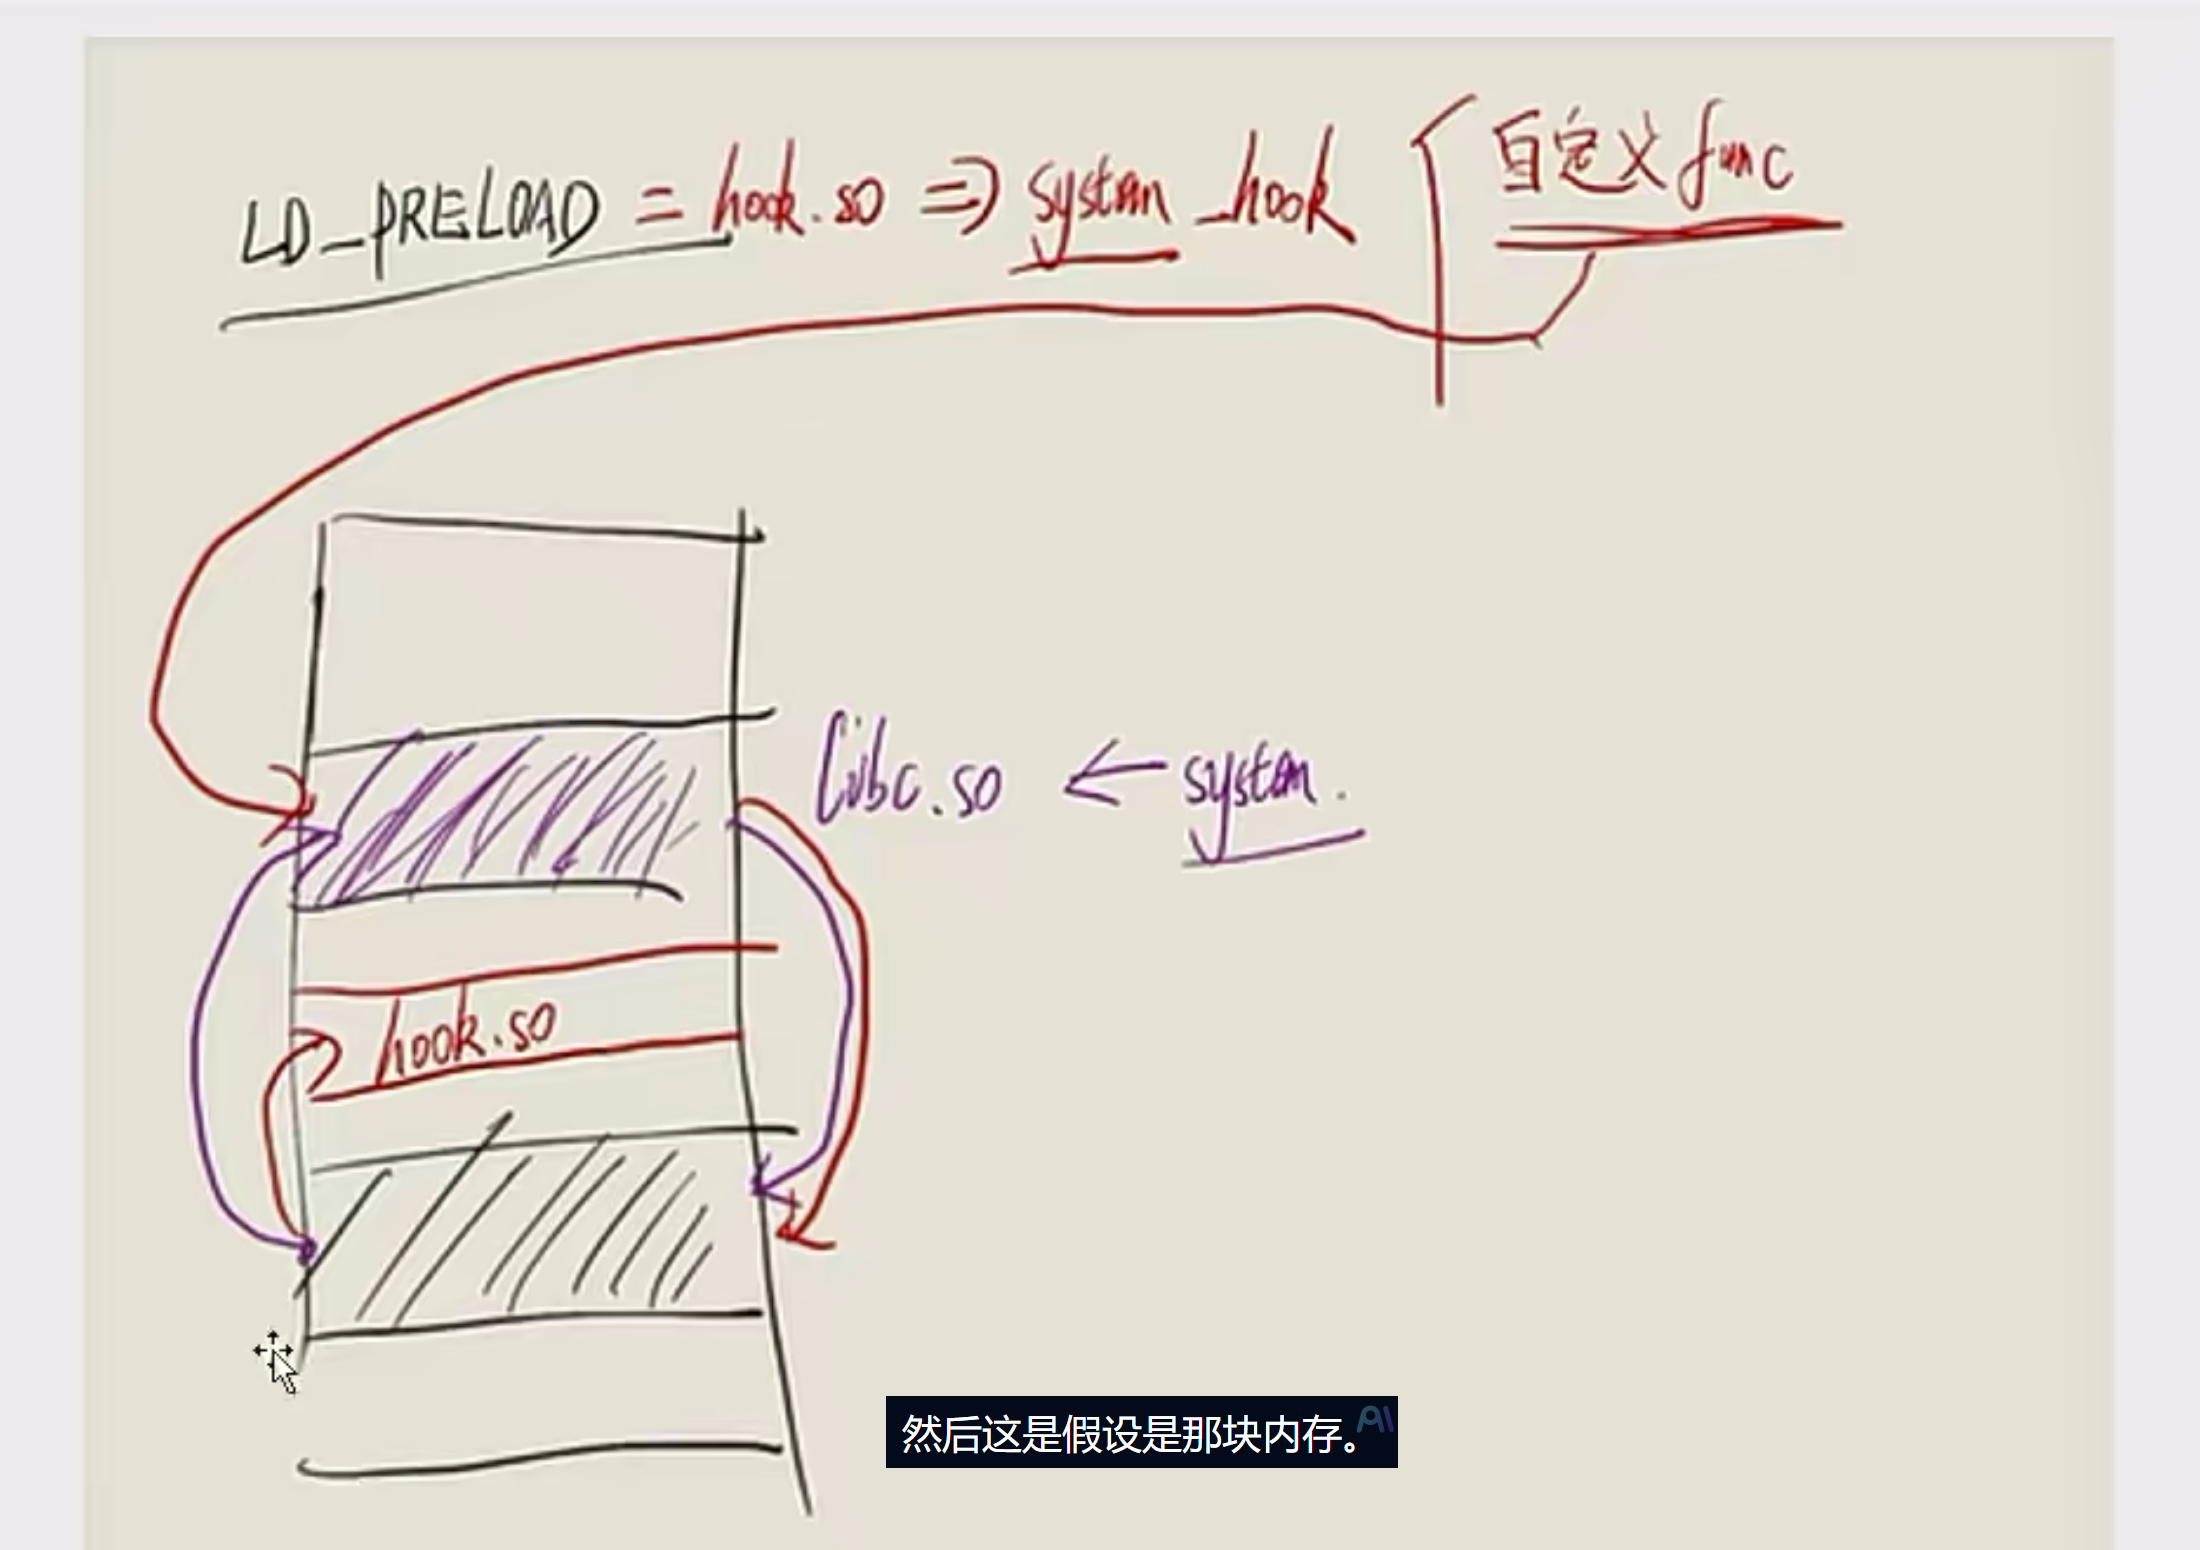 LD_PRELOAD = hook.so => system_hook { 自定义func
libc.so ← system.
hook.so
然后这是假设是那块内存。
AI